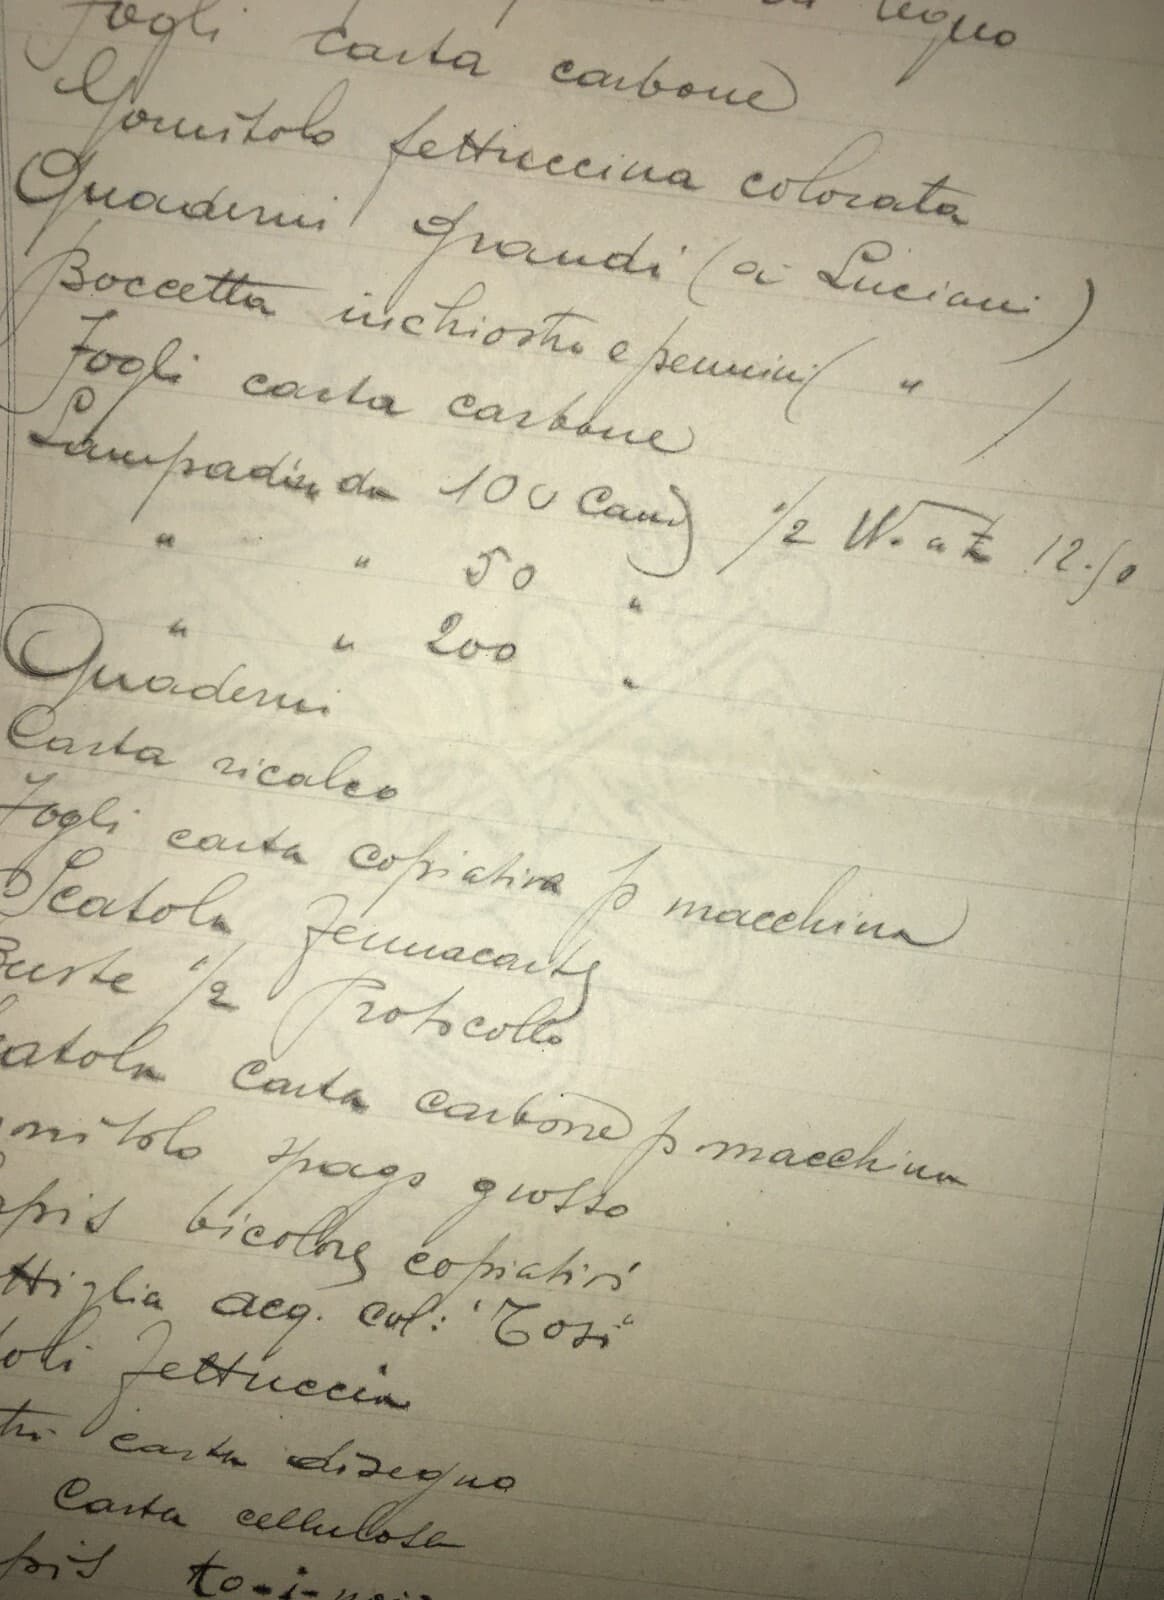 legno
Fogli carta carbone
Gomitolo fettuccina colorata
Quaderni grandi (a Luciani)
Boccetta inchiostro e pennini ( " )
Fogli carta carbone
Lampadine da 100 Cand 1/2 W. a £ 12.50
" " 50 "
" " 200 "
Quaderni
Carta ricalco
Fogli carta copiativa p macchina
Scatola fermacarte
Buste 1/2 Protocollo
catola carta carbone p macchina
mitolo spago grosso
apis bicolore copiativi
ttiglia acq. col: "Tosi"
toli fettuccia
carta disegno
Carta cellulosa
pis